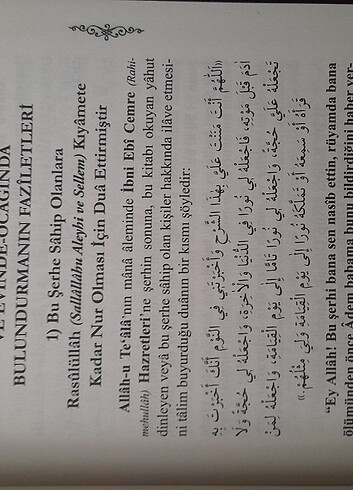 VE EVİNDE-OCAĞINDA
BULUNDURMANIN FAZÎLETLERİ
1) Bu Şerhe Sâhip Olanlara
Rasûlüllâh (Sallâllâhu Aleyhi ve Sellem) Kıyâmete
Kadar Nur Olması İçin Duâ Ettirmiştir
Allâh-u Te‘âlâ'nın mânâ âleminde İbni Ebî Cemre (Rahi-
mehullâh) Hazretleri'ne şerhin sonuna, bu kitabı okuyan yâhut
dinleyen veyâ bu şerhe sâhip olan kişiler hakkında ilâve etmesi-
ni tâlim buyurduğu duânın bir kısmı şöyledir:
«اَللّٰهُمَّ أَنْتَ مَنَنْتَ عَلَيَّ بِهٰذَا الشَّرْحِ وَأَخْبَرْتَنِي فِي النَّوْمِ أَنَّكَ أَخْبَرْتَ بِهِ
اٰدَمَ قَبْلَ مَوْتِهِ، فَاجْعَلْهُ لِي نُورًا فِي الدُّنْيَا وَالْاٰخِرَةِ، وَاجْعَلْهُ لِي حُجَّةً وَلَا
تَجْعَلْهُ عَلَيَّ حُجَّةً، وَاجْعَلْهُ لِي نُورًا تَامًّا إِلَى يَوْمِ الْقِيَامَةِ، وَاجْعَلْهُ لِمَنْ
قَرَأَهُ أَوْ سَمِعَهُ أَوْ تَمَلَّكَهُ نُورًا إِلَى يَوْمِ الْقِيَامَةِ وَلِي مِثْلُهُمْ.»
“Ey Allâh! Bu şerhi bana sen nasîb ettin, rüyamda bana
ölümünden önce Âdem babama bunu bildirdiğini haber ver-